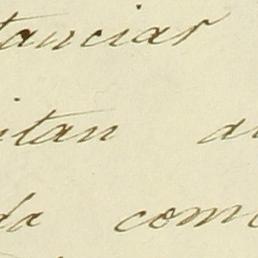 tanciar
itan
da com